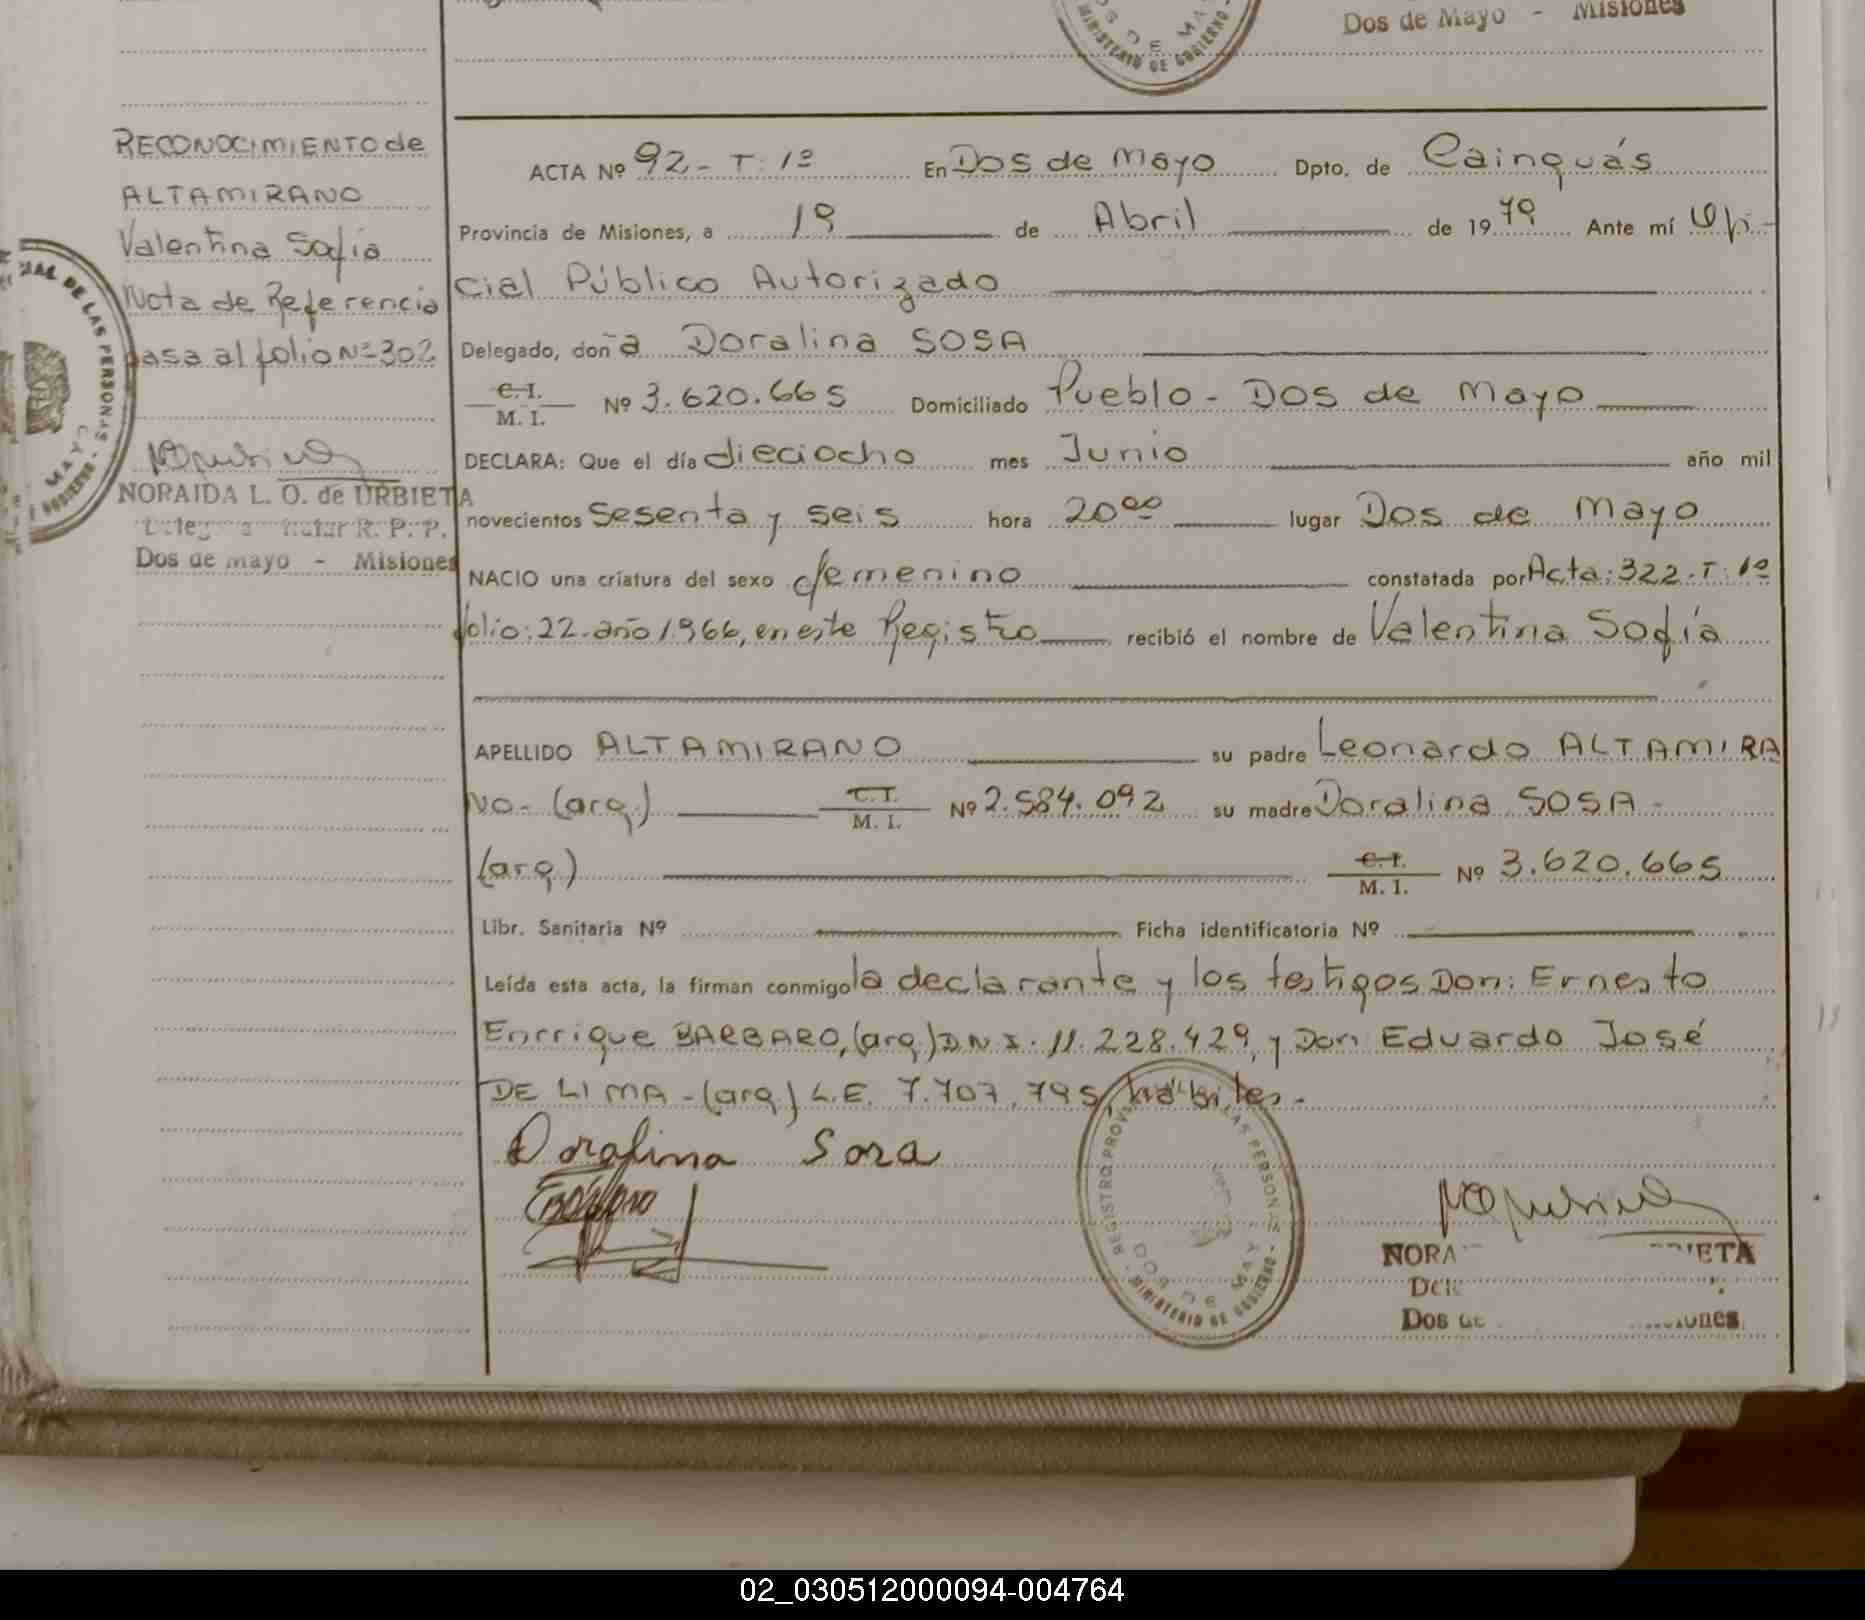 Dos de Mayo - Misiones
MINISTERIO DE GOBIERNO
RECONOCIMIENTO de
ALTAMIRANO
Valentina Sofía
Nota de Referencia
pasa al folio Nº 302
NORAIDA L. O. de URBIETA
R. P. P.
Dos de mayo - Misiones
ACTA Nº 92 - T: 1º En Dos de Mayo Dpto. de Cainguás
Provincia de Misiones, a 19 de Abril de 1979 Ante mí Ofi-
cial Público Autorizado
Delegado, doña Doralina SOSA
C. I.
M. I. Nº 3.620.665 Domiciliado Pueblo - Dos de Mayo
DECLARA: Que el día dieciocho mes Junio año mil
novecientos sesenta y seis hora 20⁰⁰ lugar Dos de Mayo
NACIO una criatura del sexo femenino constatada por Acta: 322. T: 1º
folio: 22. año 1.966, en este Registro recibió el nombre de Valentina Sofía
APELLIDO ALTAMIRANO su padre Leonardo ALTAMIRA
NO - (arg.) C. I.
M. I. Nº 2.584.092 su madre Doralina SOSA -
(arg.) C. I.
M. I. Nº 3.620.665
Libr. Sanitaria Nº Ficha identificatoria Nº
Leída esta acta, la firman conmigo la declarante y los testigos Don: Ernesto
Enrrique BARBARO, (arg.) D.N.I. 11.228.429, y Don Eduardo José
DE LIMA - (arg.) L.E. 7.707.795, hábiles.
Doralina Sosa
REGISTRO PROV LAS PERSONAS
DOS DE MAYO
MINISTERIO DE GOBIERNO
NORA IETA
Dos de iones
02_030512000094-004764